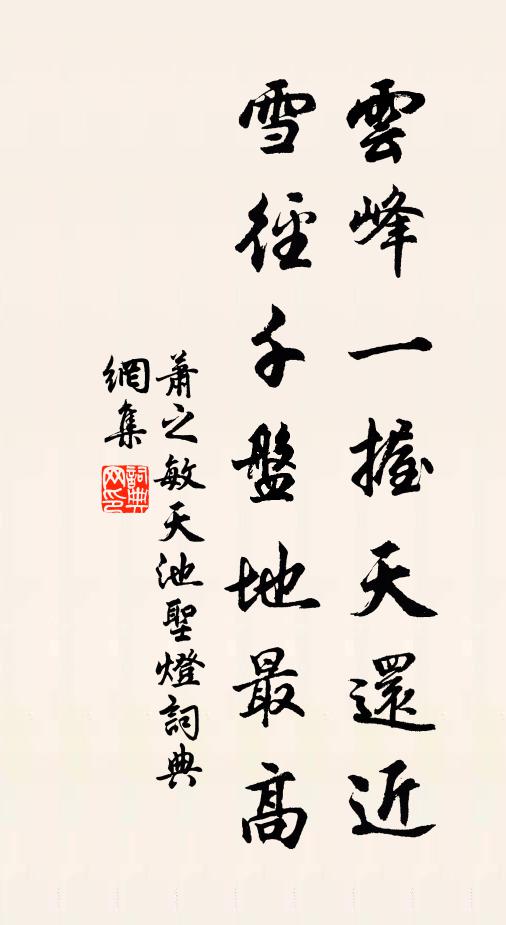 雲峰一握天還近
雪徑千盤地最高
蕭之敏天池聖燈詞典
網集
詞典
网印